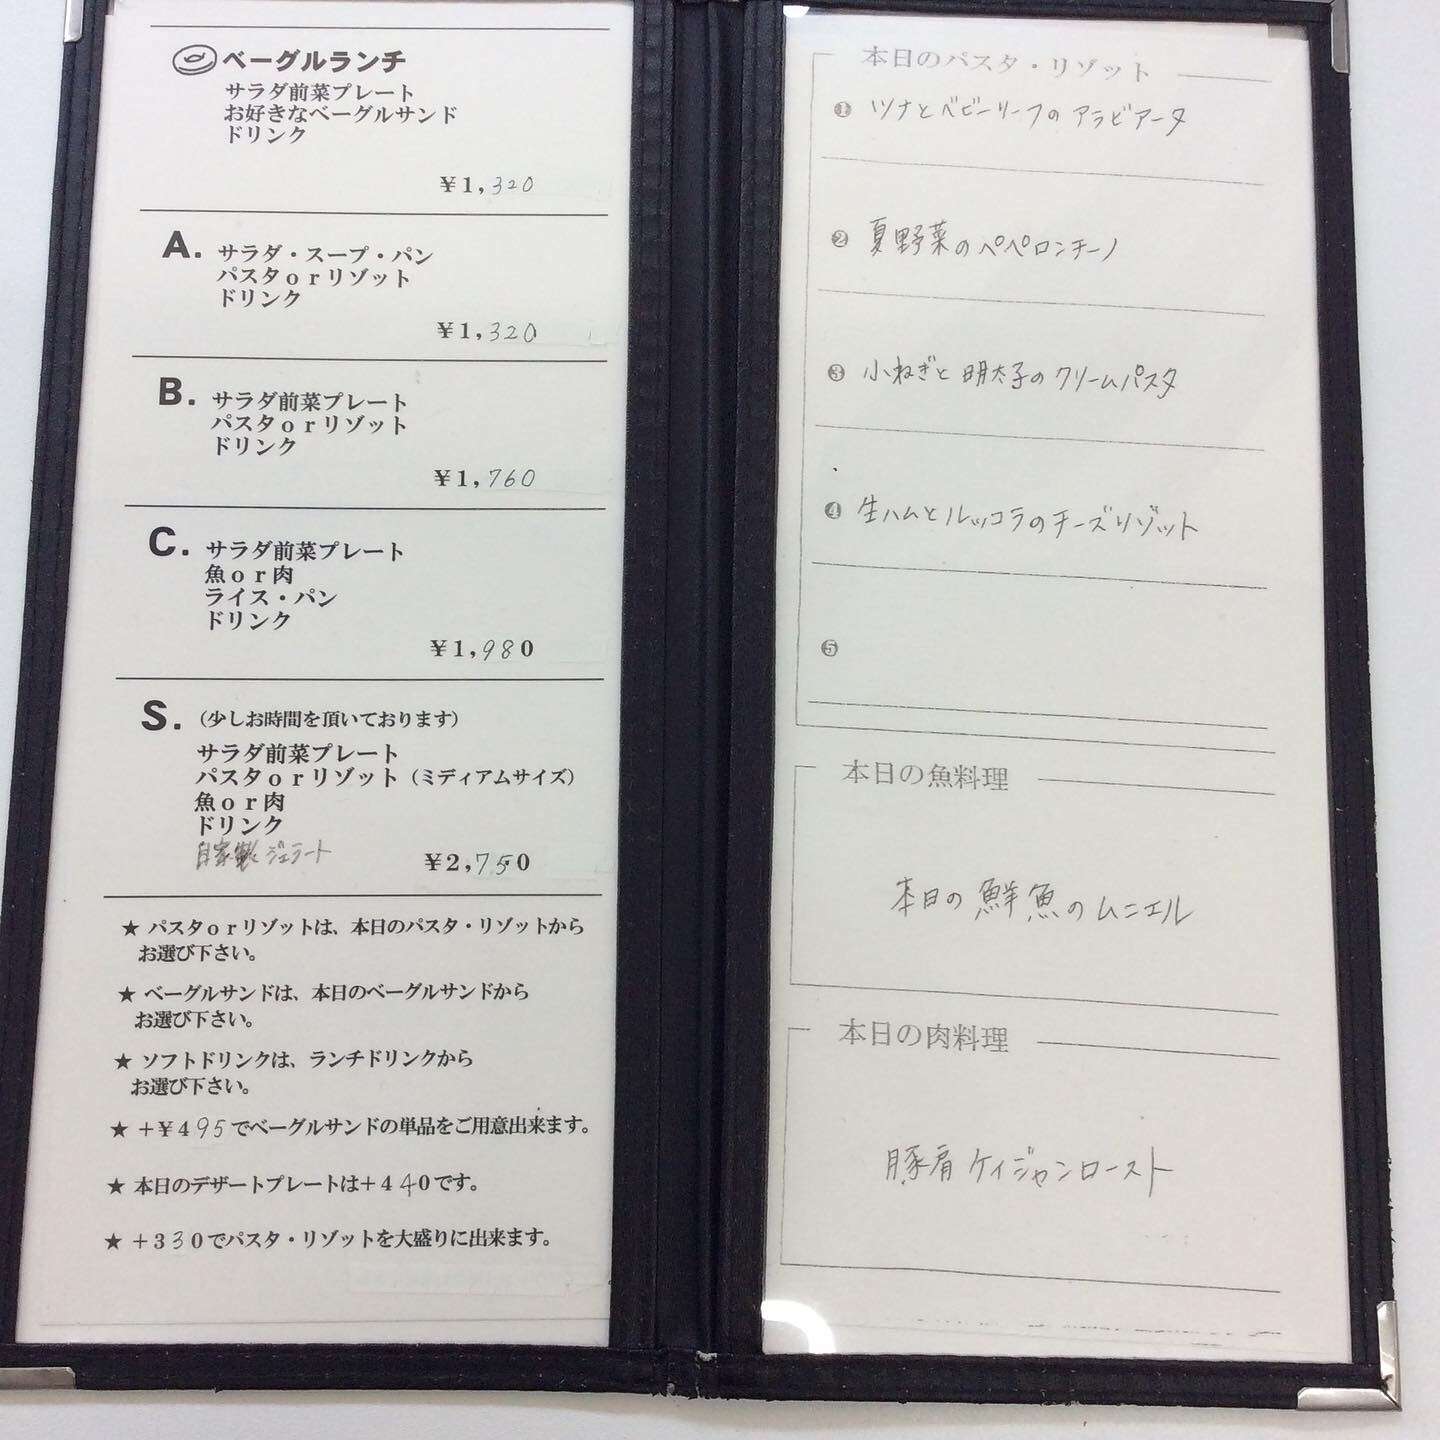 ベーグルランチ
サラダ前菜プレート
お好きなベーグルサンド
ドリンク
¥1,320
A. サラダ・スープ・パン
パスタorリゾット
ドリンク
¥1,320
B. サラダ前菜プレート
パスタorリゾット
ドリンク
¥1,760
C. サラダ前菜プレート
魚or肉
ライス・パン
ドリンク
¥1,980
S. (少しお時間を頂いております)
サラダ前菜プレート
パスタorリゾット(ミディアムサイズ)
魚or肉
ドリンク
自家製ジェラート ¥2,750
★ パスタorリゾットは、本日のパスタ・リゾットから
お選び下さい。
★ ベーグルサンドは、本日のベーグルサンドから
お選び下さい。
★ ソフトドリンクは、ランチドリンクから
お選び下さい。
★ +¥495でベーグルサンドの単品をご用意出来ます。
★ 本日のデザートプレートは+440です。
★ +330でパスタ・リゾットを大盛りに出来ます。
本日のパスタ・リゾット
❶ ツナとベビーリーフのアラビアータ
❷ 夏野菜のペペロンチーノ
❸ 小ねぎと明太子のクリームパスタ
❹ 生ハムとルッコラのチーズリゾット
❺
本日の魚料理
本日の鮮魚のムニエル
本日の肉料理
豚肩ケイジャンロースト